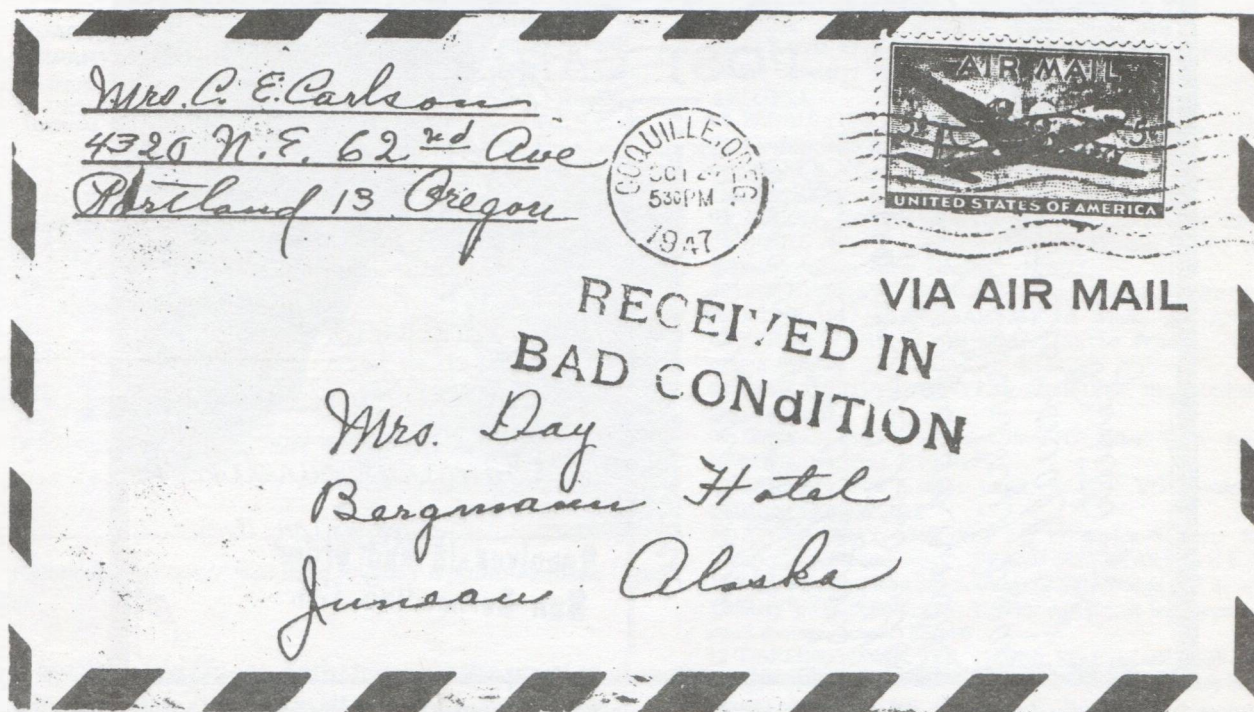 Mrs. C. E. Carlson
4320 N.E. 62nd Ave
Portland 13 Oregon
COQUILLE, OREG
OCT
530PM
1947
AIR MAIL
5¢ 5¢
UNITED STATES OF AMERICA
VIA AIR MAIL
RECEIVED IN
BAD CONdITION
Mrs. Day
Bergmann Hotel
Juneau Alaska